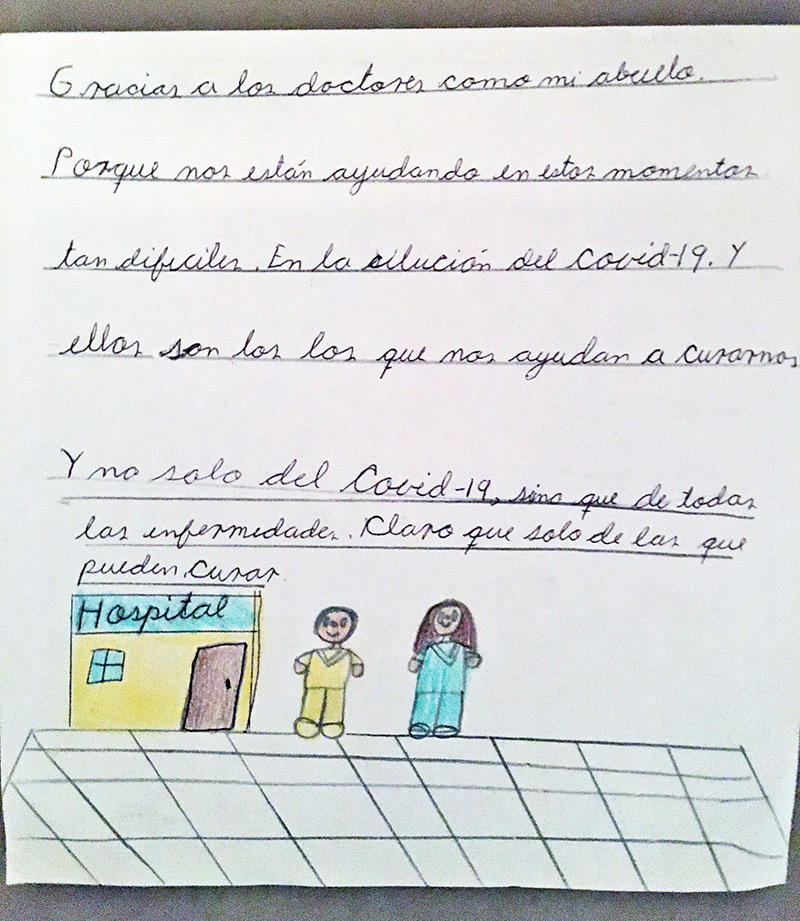 Gracias a los doctores como mi abuelo.
Porque nos están ayudando en estos momentos
tan dificiles. En la silución del Covid-19. Y
ellos son los los que nos ayudan a curarnos
Y no solo del Covid-19, sino que de todas
las enfermedades. Claro que solo de las que
pueden curar.
Hospital